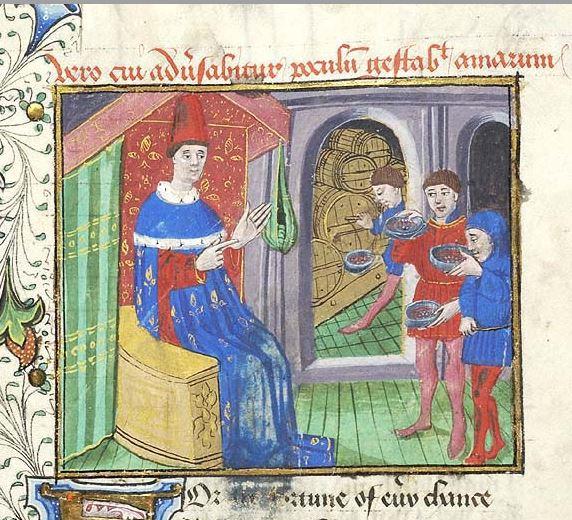 Vero cui adūsabitur poculū gestabt amarum
Or fortune of euy chance